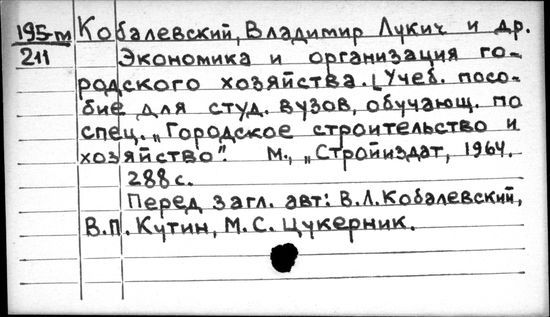 195-m Кобалевский, Владимир Лукич и др.
211 Экономика и организация го-
родского хозяйства. [Учеб. посо-
бие для студ. вузов, обучающ. по
спец. „Городское строительство и
хозяйство". М., „Стройиздат, 1964.
288 с.
Перед загл. авт: В.Л. Кобалевский,
В.П. Кутин, М.С. Цукерник.